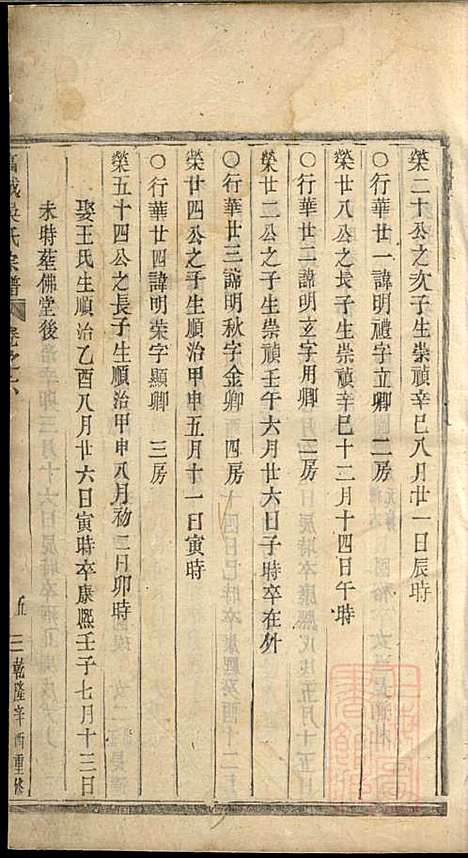 榮二十公之次子生崇禎辛巳八月廿一日辰時
○行華廿一諱明禮字立卿 二房
榮廿八公之長子生崇禎辛巳十二月十四日午時
○行華廿二諱明玄字用卿 二房
榮廿二公之子生崇禎壬午六月廿六日子時卒在外
○行華廿三諱明秋字金卿 四房
榮廿四公之子生順治甲申五月十一日寅時
○行華廿四諱明榮字顯卿 三房
榮五十四公之長子生順治甲申八月初二日卯時
娶王氏生順治乙酉八月廿六日寅時卒康熙壬子七月十三日
未時塟佛堂後
吳氏宗譜 卷之六
三 乾隆辛酉重修